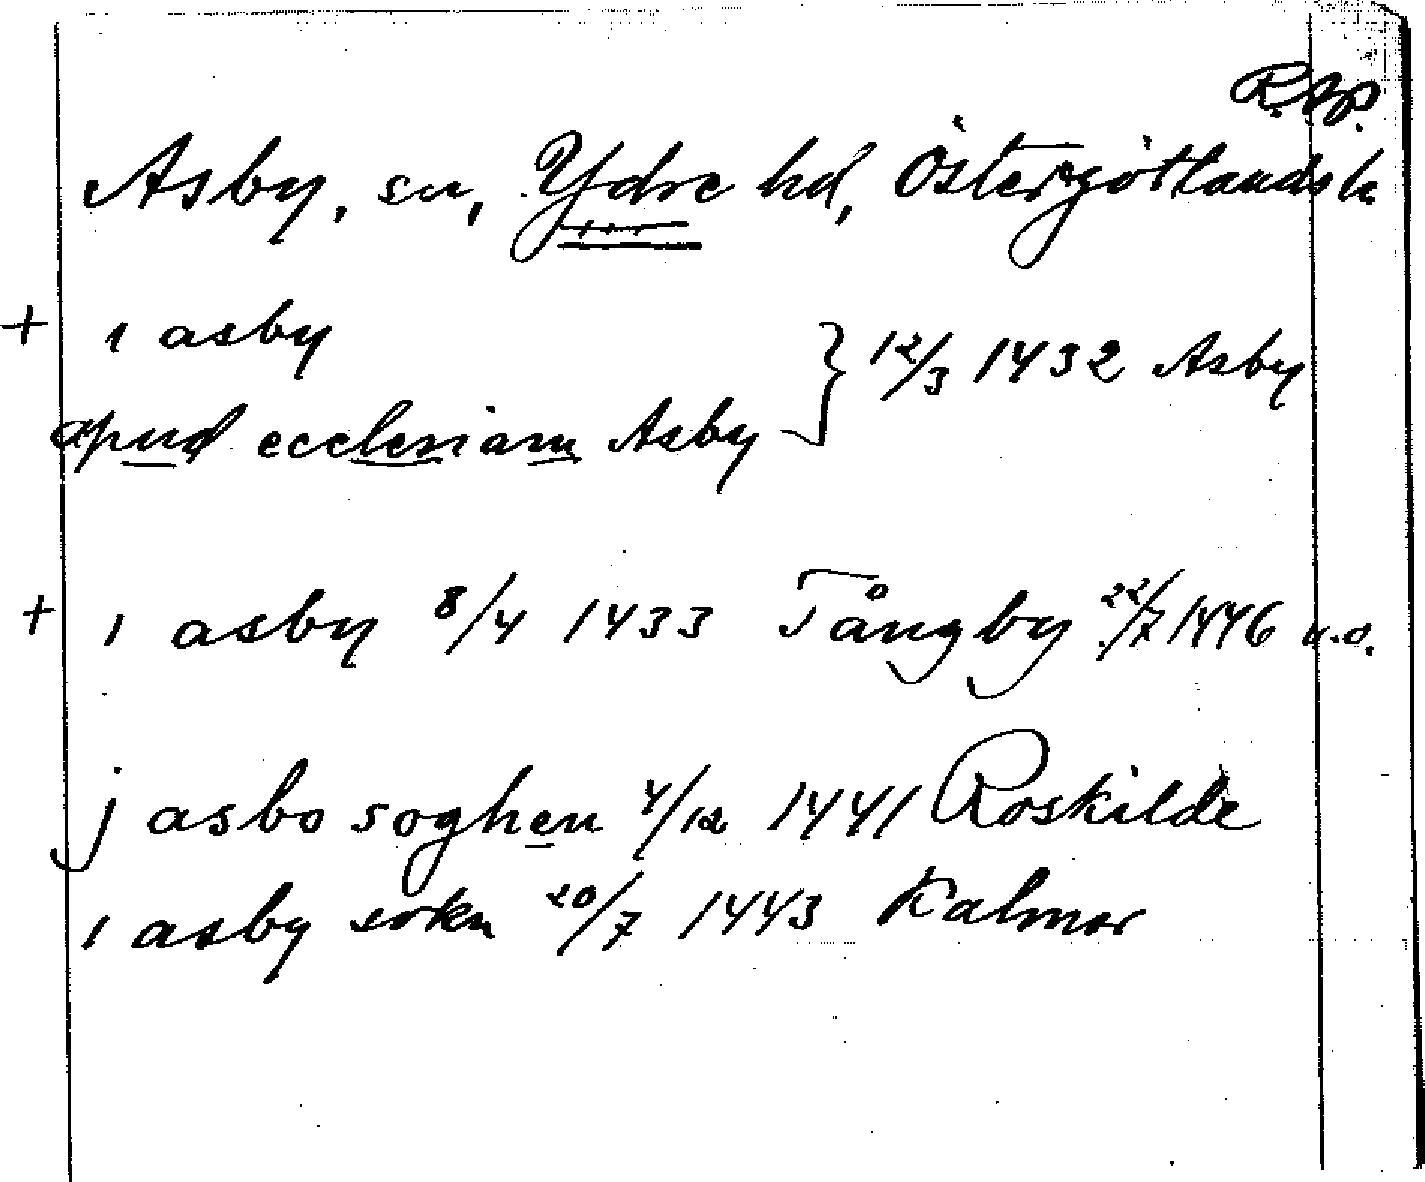 R.Ap.
Asby, sn, Ydre hd, Östergötlands l.
+ i asby
apud ecclesiam Asby } 12/3 1432 Asby
+ i asby 8/4 1433 Tångby 22/7 1446 u.o.
j asbo soghen 4/12 1441 Roskilde
i asby sokn 20/7 1443 Kalmar